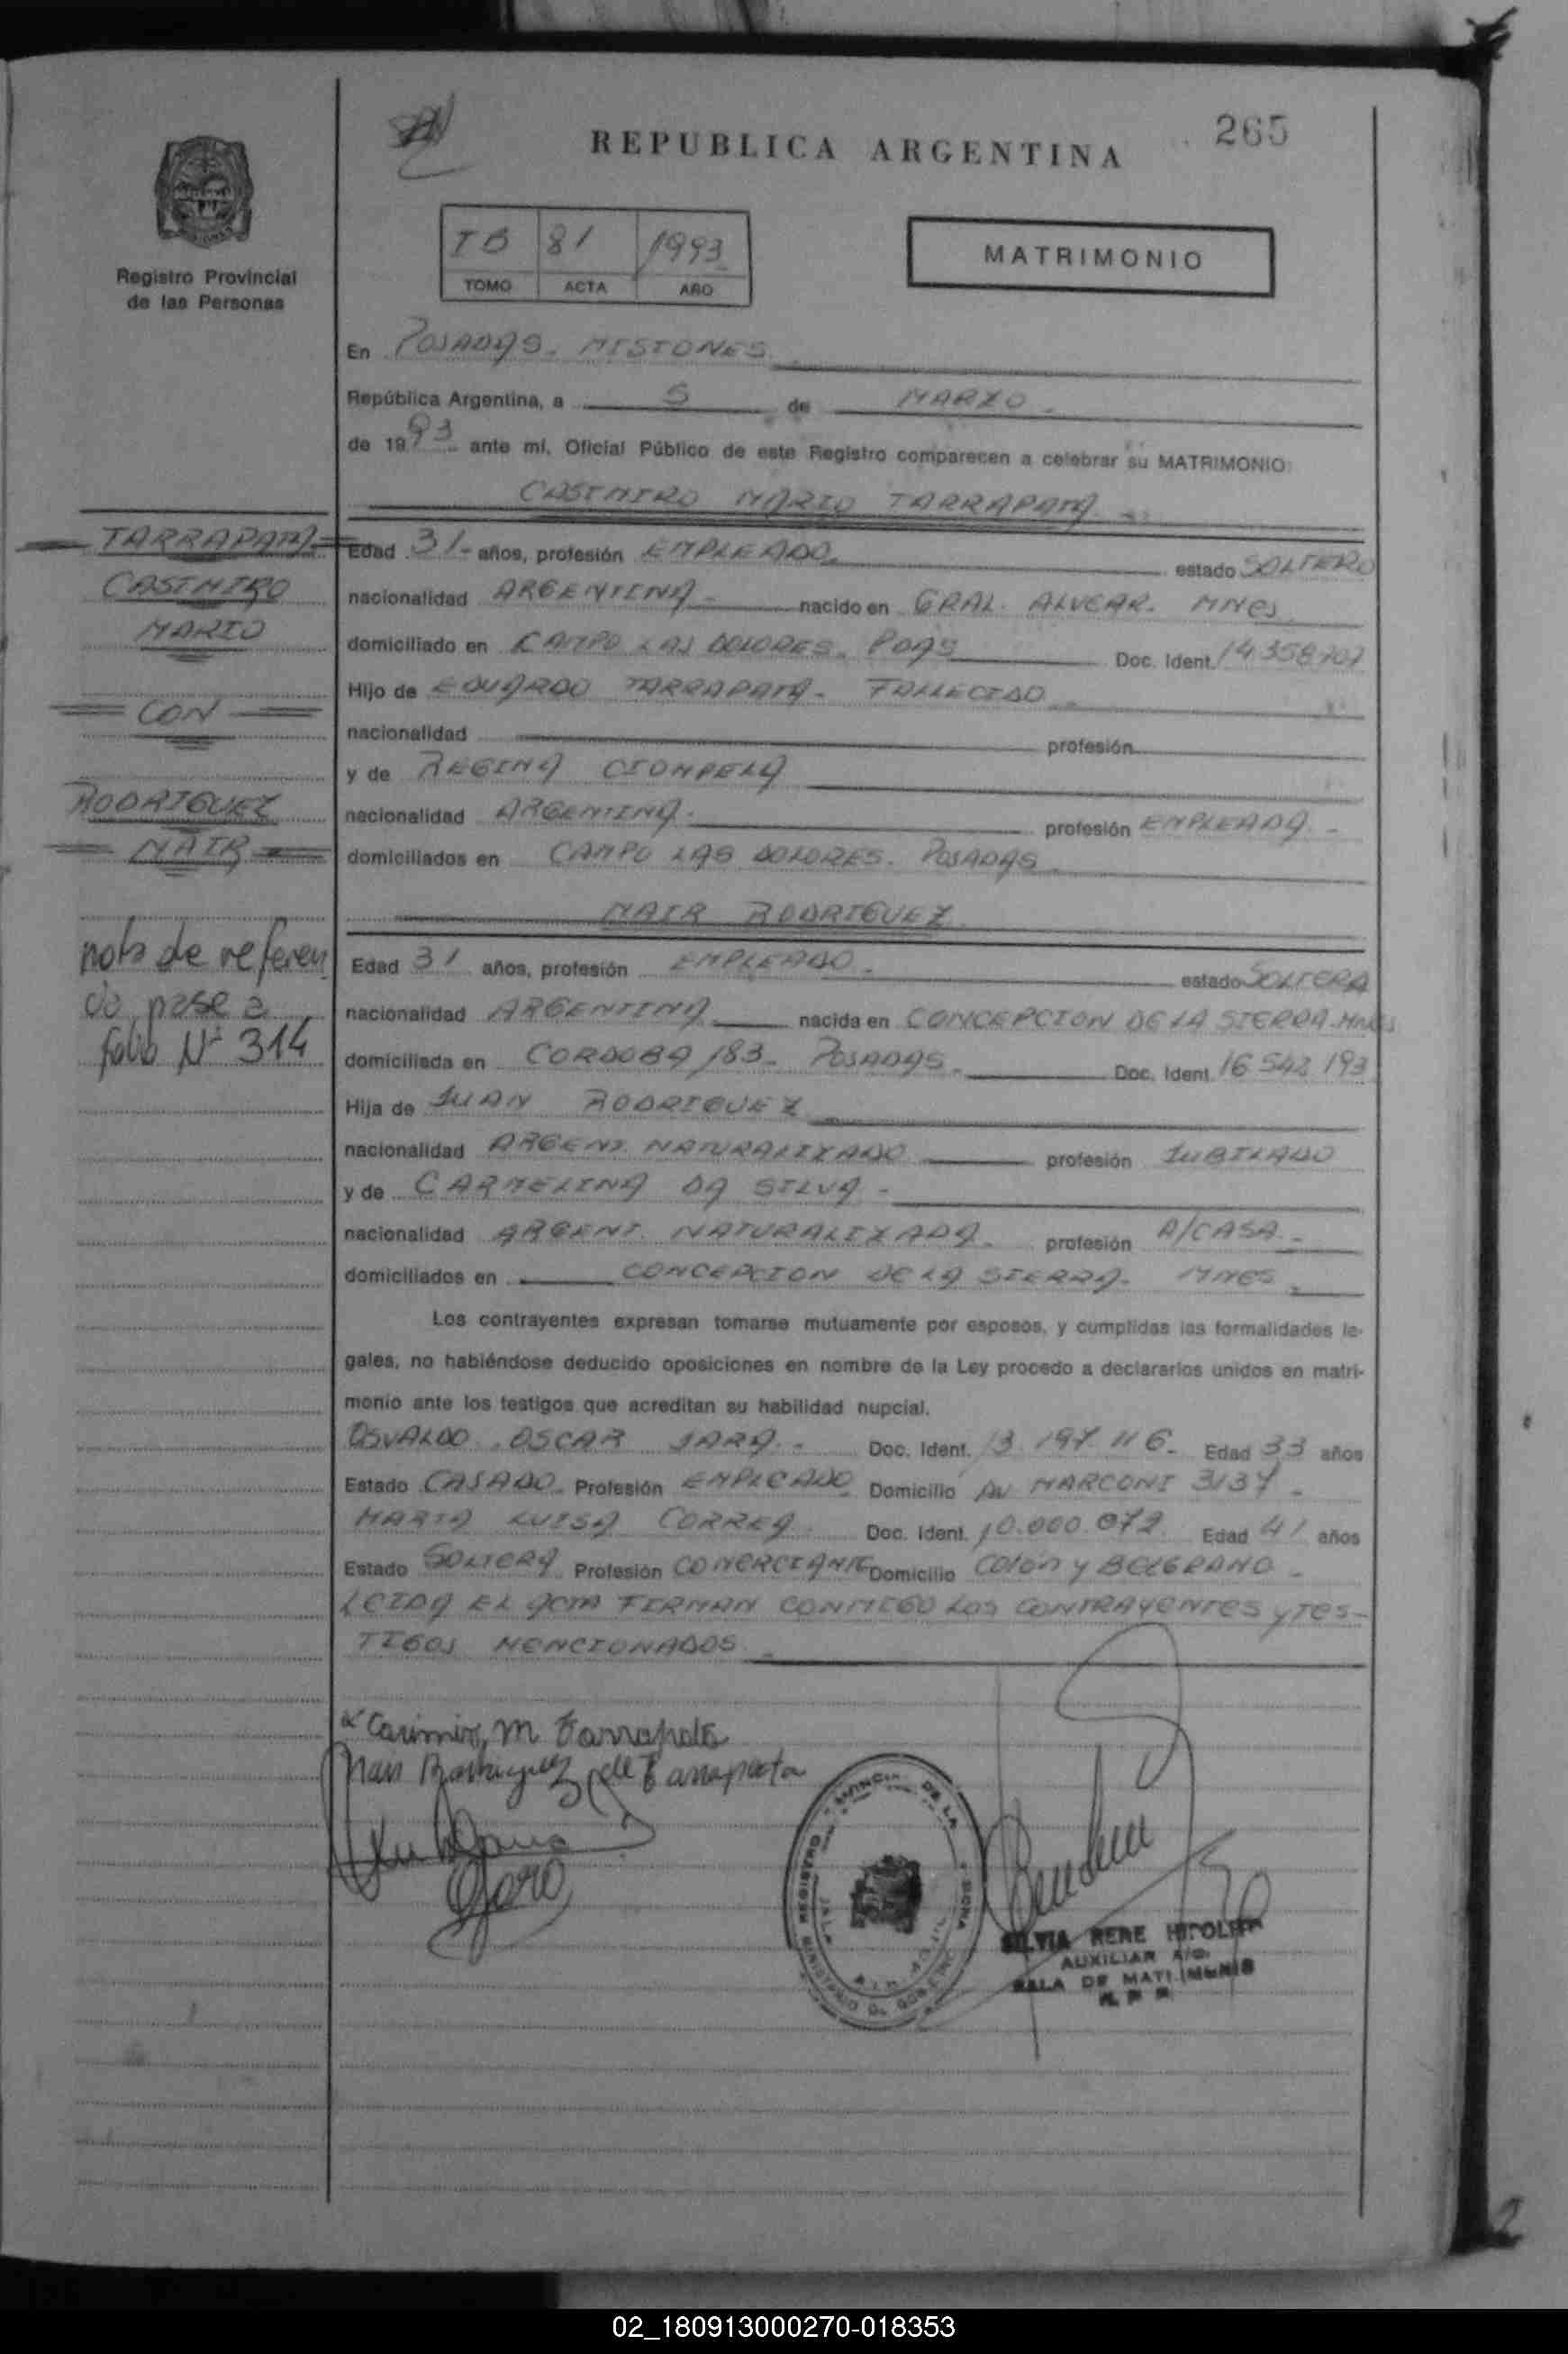 265
REPUBLICA ARGENTINA
Registro Provincial
de las Personas
81 1993
TOMO ACTA AÑO
MATRIMONIO
En POSADAS. MISIONES
República Argentina, a 5 de MARZO.
de 1993 ante mí, Oficial Público de este Registro comparecen a celebrar su MATRIMONIO:
CASIMIRO MARIO TARRAPATA
TARRAPATA
CASIMIRO
MARIO
CON
RODRIGUEZ
NAIR
nota de referen
cia pase a
folio Nº 314
Edad 31 años, profesión EMPLEADO. estado SOLTERO
nacionalidad ARGENTINA nacido en GRAL. ALVEAR. MNES
domiciliado en CAMPO LAS DOLORES. PDAS Doc. Ident. 14.358.707
Hijo de EDUARDO TARRAPATA - FALLECIDO
nacionalidad profesión
y de REGINA
nacionalidad ARGENTINA. profesión EMPLEADA.
domiciliados en CAMPO LAS DOLORES. POSADAS
NAIR RODRIGUEZ
Edad 31 años, profesión EMPLEADO. estado SOLTERA
nacionalidad ARGENTINA nacida en CONCEPCION DE LA SIERRA-MNES
domiciliada en CORDOBA 183. POSADAS. Doc. Ident. 16.542.193
Hija de JUAN RODRIGUEZ
nacionalidad ARGENT. NATURALIZADO profesión JUBILADO
y de CARMELINA DA SILVA -
nacionalidad ARGENT. NATURALIZADA profesión A/CASA.
domiciliados en CONCEPCION DE LA SIERRA. MNES
Los contrayentes expresan tomarse mutuamente por esposos, y cumplidas las formalidades le-
gales, no habiéndose deducido oposiciones en nombre de la Ley procedo a declararlos unidos en matri-
monio ante los testigos que acreditan su habilidad nupcial.
OSVALDO OSCAR JARA. Doc. Ident. 13.197.116. Edad 33 años
Estado CASADO. Profesión EMPLEADO Domicilio AV MARCONI 3137.
MARIA LUISA CORREA Doc. Ident. 10.000.072 Edad 41 años
Estado SOLTERA Profesión COMERCIANTE Domicilio Colón y BELGRANO.
LEIDA EL ACTA FIRMAN CONMIGO LOS CONTRAYENTES y TES-
TIGOS MENCIONADOS
Casimiro M Tarrapata
Nair Rodriguez de Tarrapata
SILVIA RENE HIPOLITA
AUXILIAR A/C.
SALA DE MATRIMONIO
02_180913000270-018353